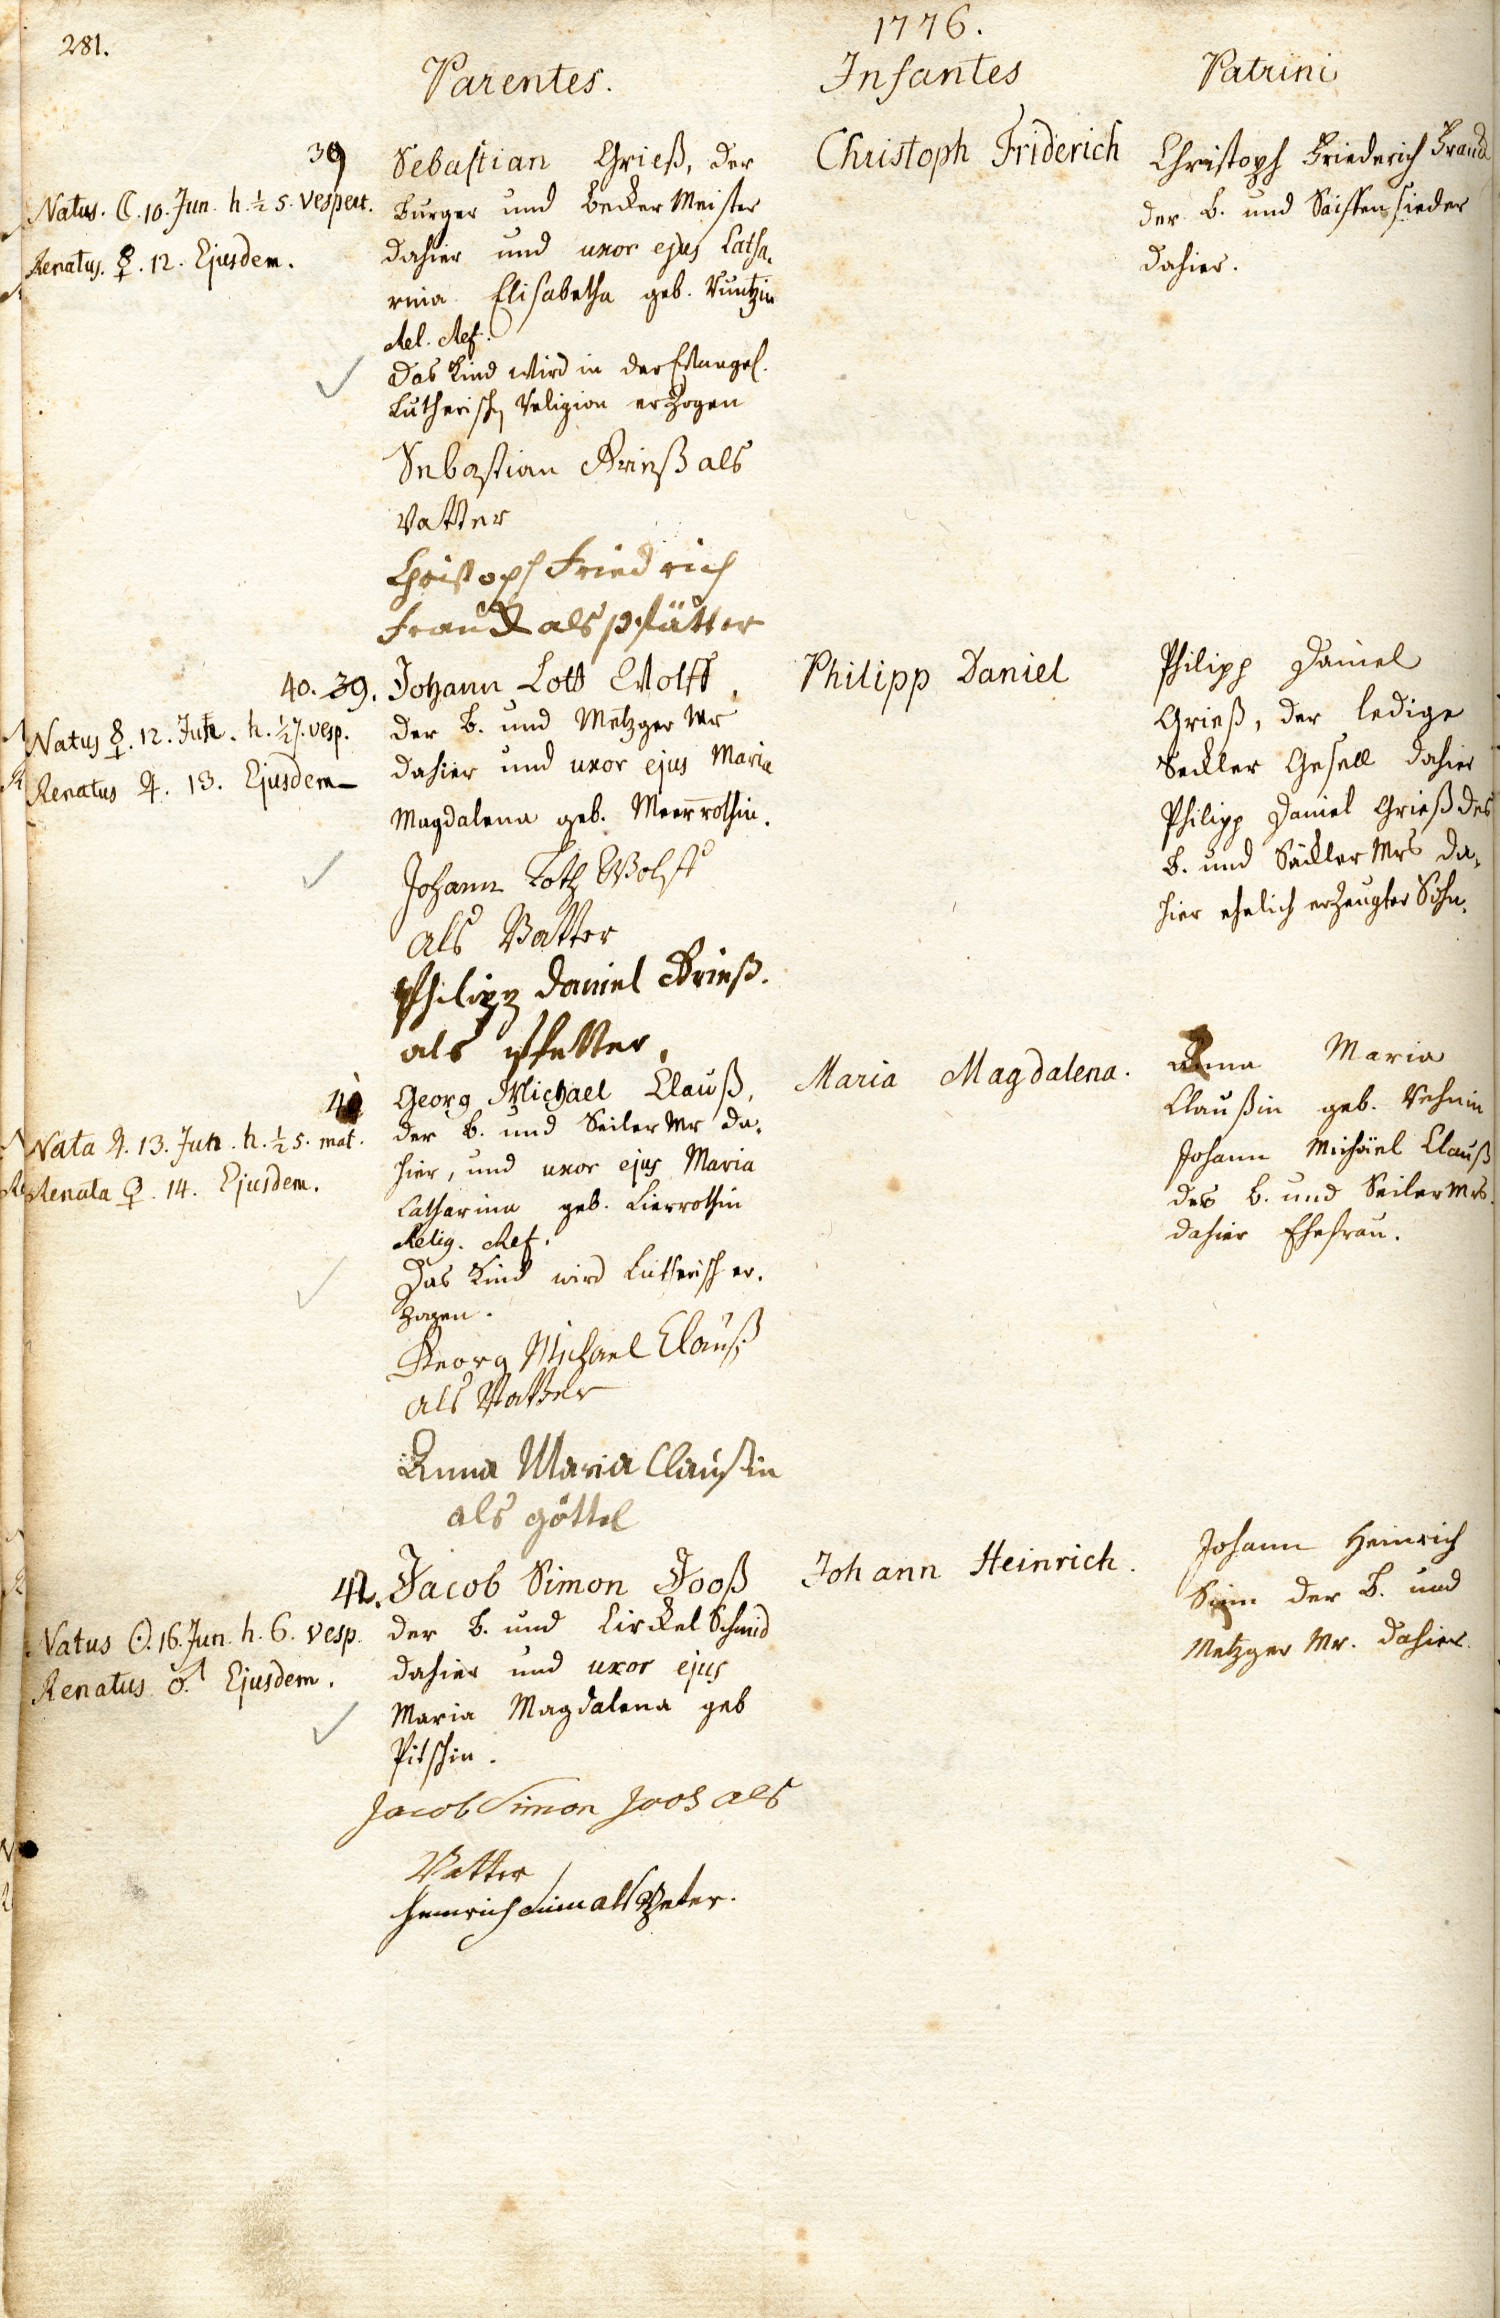 281.
1776.
Parentes.
Infantes
Patrini
39
Natus. ☾. 10. Jun. h. ½ 5. vespert.
Renatus. ☿. 12. Ejusdem.
Sebastian Grieß, der
Burger und Becker Meister
dahier und uxor ejus Catha-
rina Elisabetha geb. Kuntzin
Rel. Ref.
das Kind wird in der Evangel.
Lutherisch Religion erzogen
Sebastian Grieß als
Vatter
Christoph Friedrich
Franck als pfätter
Christoph Friderich
Christoph Friederich Franck
der B. und Saiffensieder
dahier.
40. 39.
Natus ☿. 12. Jun. h. ½ 7. vesp.
Renatus ♃. 13. Ejusdem
Johann Lott Wolff,
der B. und Metzger Mr
dahier und uxor ejus Maria
Magdalena geb. Meerrothin.
Johann Loth Wolff
als Vatter
Philipp Daniel Grieß.
als pfetter.
Philipp Daniel
Philipp Daniel
Grieß, der ledige
Seckler Gesell dahier
Philipp Daniel Grieß des
B. und Säckler Mrs da-
hier ehelich erzeugter Sohn.
41
Nata ♃. 13. Jun. h. ½ 5. mat.
Renata ♀. 14. Ejusdem.
Georg Michael Clauß,
der B. und Seiler Mr da-
hier, und uxor ejus Maria
Catharina geb.
Relig. Ref.
Das Kind wird Lutherisch er-
zogen.
Georg Michael Clauß
als Vatter
Anna Maria Claußin
als göttel
Maria Magdalena.
Anna Maria
Claußin geb.
Johann Michäel Clauß
des B. und Seiler Mrs.
dahier Ehefrau.
42.
Natus ☉. 16. Jun. h. 6. vesp.
Renatus ♂ Ejusdem.
Jacob Simon Jooß
der B. und Circkel Schmid
dahier und uxor ejus
Maria Magdalena geb
Pitschin.
Jacob Simon Joos als
Vatter
Heinrich als
Johann Heinrich.
Johann Heinrich
der B. und
Metzger Mr. dahier.